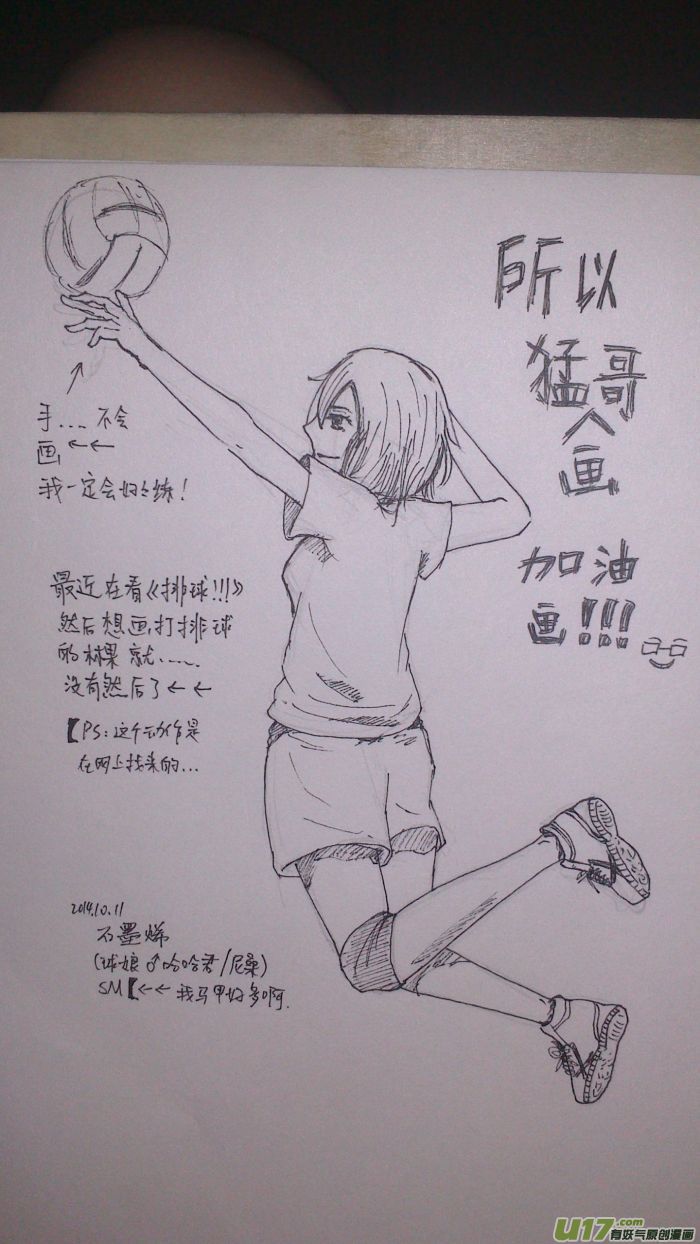 所以
猛哥
画
加油
画!!!
手... 不会
画←←
我一定会好好练!
最近在看《排球!!!》
然后想画打排球
的林果就......
没有然后了←←
【PS:这个动作是
在网上找来的...
2014.10.11
石墨烯
(球娘♂哈哈君/尼桑)
SM【←←我马甲好多啊.
U17.com
有妖气原创漫画